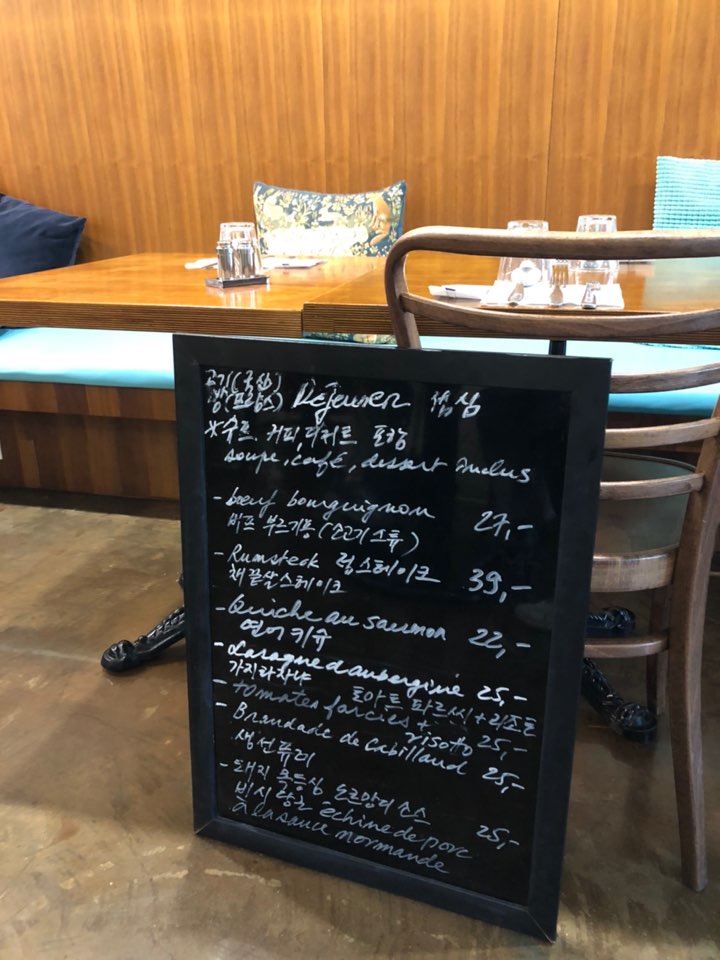 고기(국산)
쌀(프랑스) Déjeuner 점심
*수프, 커피, 디저트 포함
soupe, café, dessert inclus
- bœuf bourguignon 27,-
비프 부르기뇽 (소고기 스튜)
- Rumsteak 럼스테이크 39,-
채끝살 스테이크
- Quiche au saumon 22,-
연어 키슈
- Lasagne d'aubergine 25,-
가지 라자냐
- tomates farcies + risotto 25,-
토마토 파르시 + 리조또
- Brandade de cabillaud 25,-
생선 퓨레
- 돼지 목등심 노르망디 소스
échine de porc 25,-
à la sauce normande